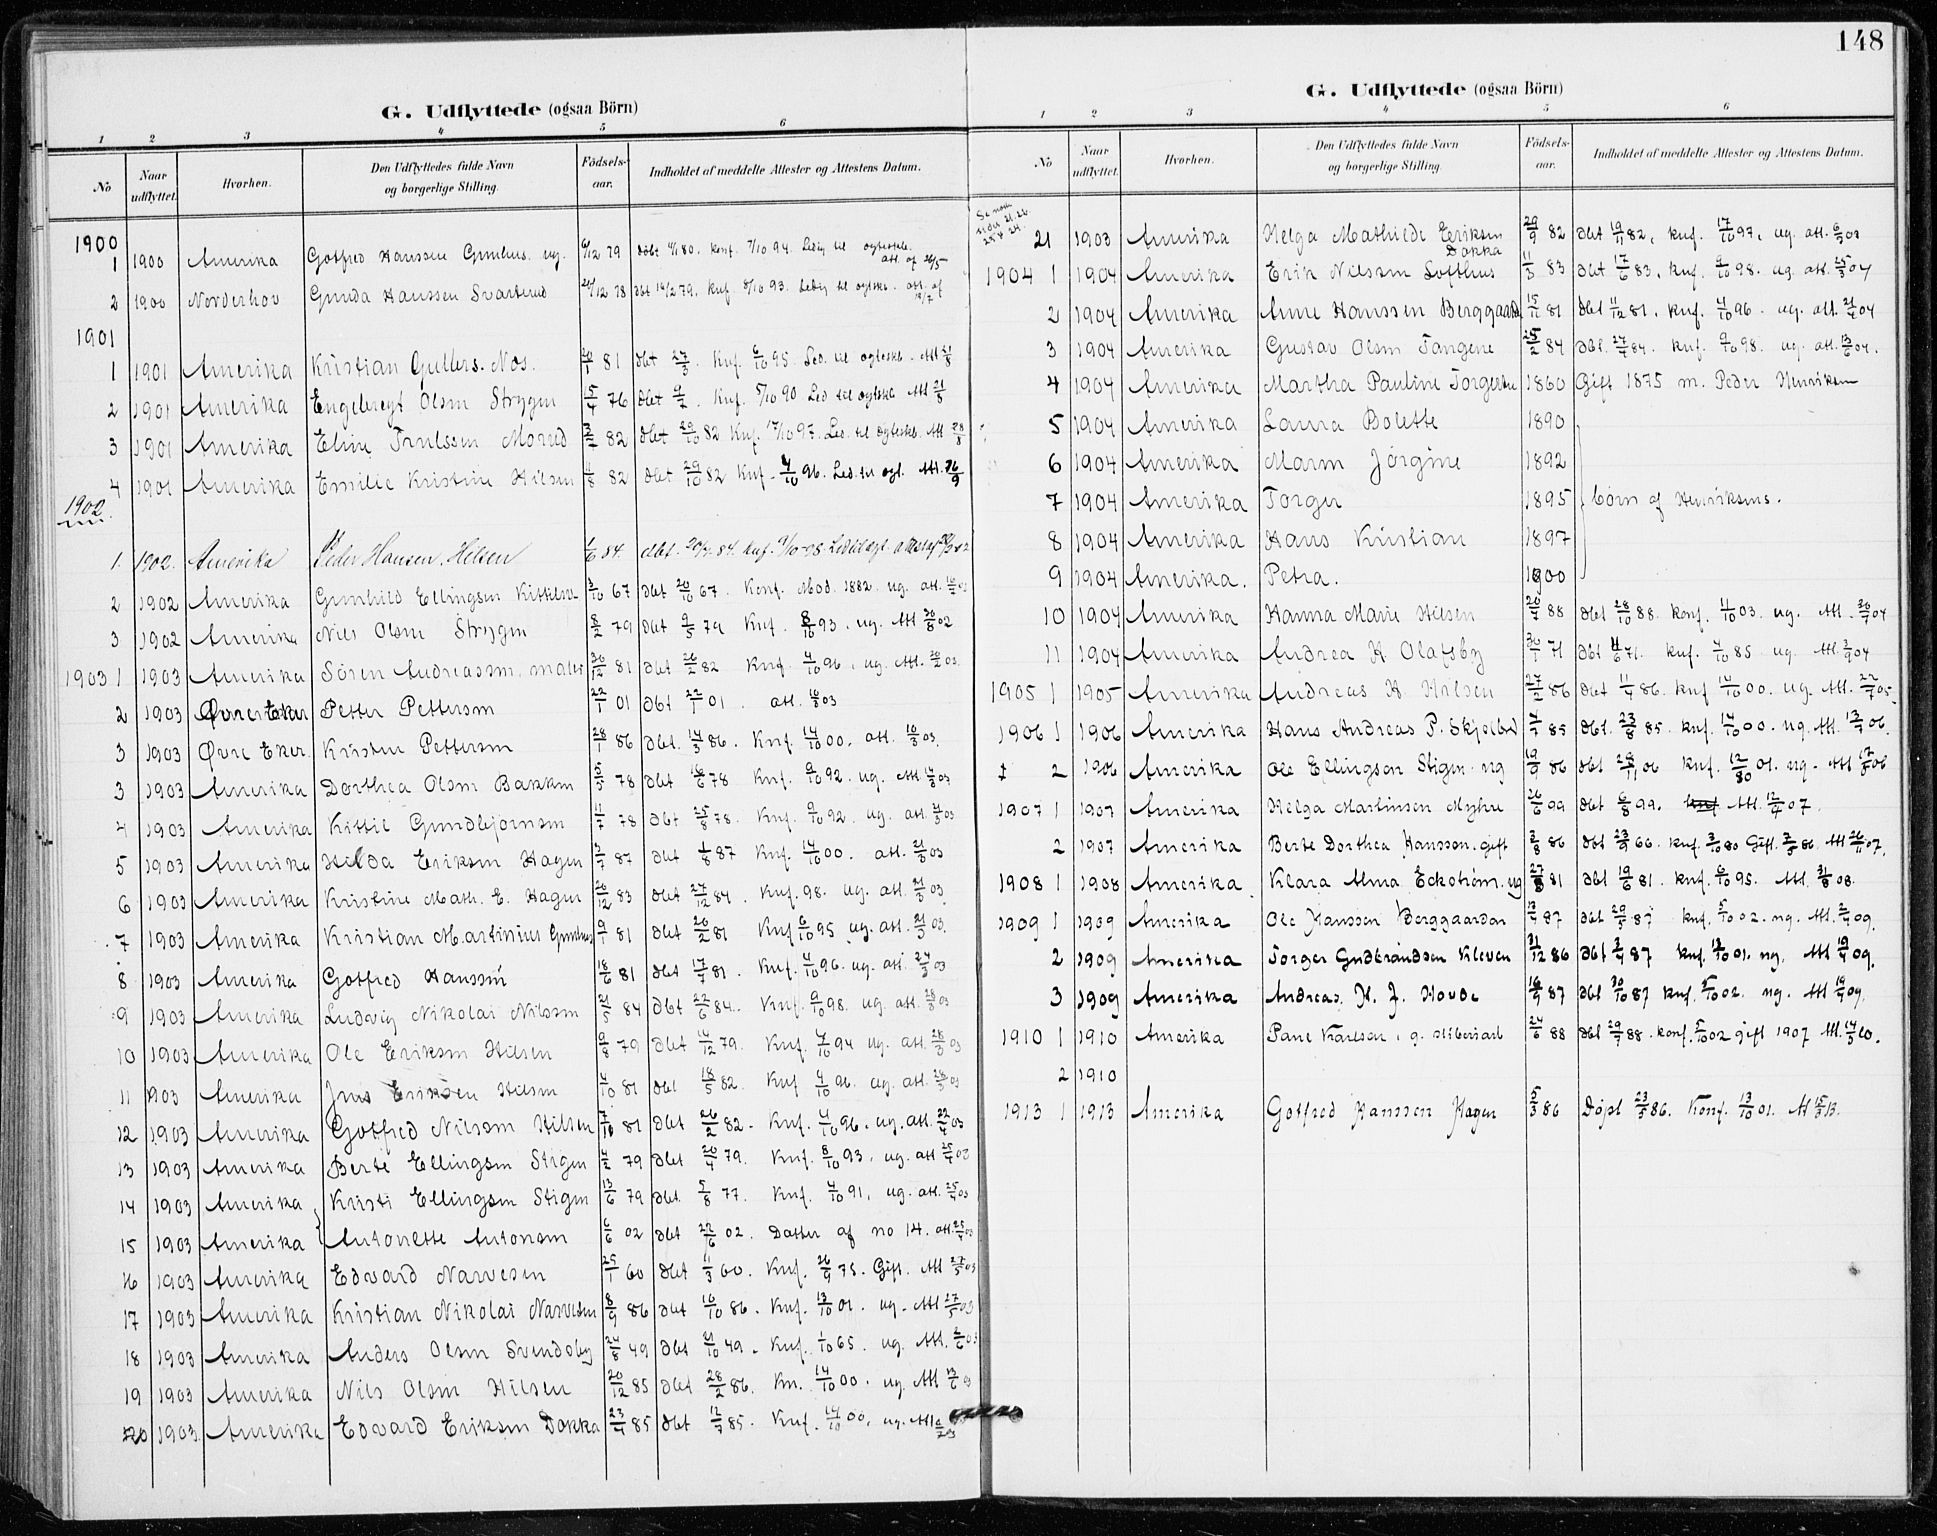 148
G. Udflyttede (ogsaa Börn)
1 2 3 4 5 6
No Naar udflyttet. Hvorhen. Den Udflyttedes fulde Navn og borgerlige Stilling. Födsels-aar. Indholdet af meddelte Attester og Attestens Datum.
1900
1 1900 Amerika Gotfred Hanssen ug. 79 döbt 80. konf. 7/10 94. Ledig til ægteskb. att. af
2 1900 Norderhov Gunda Hanssen Svarterud 78 dbt 79. knf. 8/10 93. Ledig til ægtesk. att. af
1901
1 1901 Amerika Kristian Gullers. Nos. 81 dbt Knf. 6/10 95. Led. til ægteskb. Att
2 1901 Amerika Engebregt Olsen Strygen 15/4 76 dbt Knf. 5/10 90 Led til ægteskb Att
3 1901 Amerika Eline Trulssen Morud 82 dbt 29/10 82 Knf. 17/10 97. Led. til ægteskb. Att
4 1901 Amerika Emilie Kristine Hilsen 82 dbt 29/10 82 Knf. 4/10 96. Led. til ægt. Att.
1902
1. 1902. Amerika Peder Hansen. Hilsen 84. dbt. 84. knf.
2 1902 Amerika Gunhild Ellingsen Kittelsrud 3/10 67 dbt 20/10 67. Konf. Mod. 1882. ug. att.
3 1902 Amerika Nils Olsen Strygen 8/2 79 dbt 9/5 79 Knf. 8/10 93. ug. Att 02
1903 1 1903 Amerika Sören Andreassen, maler 30/12 81 dbt 26/2 82 Knf. 4/10 96. ug. Att. 03.
2 1903 Övre Eker Petter Pettersen 22/1 01 dbt 22/1 01. att. 03
3 1903 Övre Eker Kristen Pettersen 28/1 86 dbt. 14/3 86. Knf. 14/10 00. att. 03.
3 1903 Amerika Dorthea Olsen Bakken 5/5 78 dbt 78 Knf. 9/10 92. ug. att. 03
4 1903 Amerika Kittil Gundbjörnsen 11/7 78 dbt 25/8 78. Knf. 9/10 92. ug. att. 03
5 1903 Amerika Hilda Eriksen Hagen 3/7 87 dbt 1/8 87 Knf. 14/10 00. att. 03
6 1903 Amerika Kristine Math. E. Hagen 20/12 83 dbt 27/12 84. Knf. 98. ug. att. 03.
7 1903 Amerika Kristian Martinius 9/1 81 dbt 20/2 81 Knf 6/10 95 ug. att. 03.
8 1903 Amerika Gotfred Hanssen 18/6 81 dbt 17/7 81. Knf. 4/10 96. ug. att. 03
9 1903 Amerika Ludvig Nikolai Nilssen 21/5 84 dbt 22/6 84. Knf. 9/10 98. ug. att. 03
10 1903 Amerika Ole Eriksen Hilsen 9/8 79 dbt 14/12 79. Knf. 7/10 94 ug. att. 28/3 03
11 1903 Amerika Jens Eriksen Hilsen 4/10 81 dbt 18/5 82. Knf 4/10 96. ug. att. 28/3 03
12 1903 Amerika Gotfred Nilssen Hilsen 7/10 81 dbt 26/2 82. Knf. 4/10 96. ug. att. 22/4 03
13 1903 Amerika Berte Ellingsen Stigen 4/2 79 dbt 20/4 79. Knf. 8/10 93. ug. att 25/4 03
14 1903 Amerika Kristi Ellingsen Stigen 13/6 79 dbt. 5/8 77. Knf. 4/10 91, ug. att. 25/4 03
15 1903 Amerika Antonette Antonsen 6/6 02 dbt 22/6 02. Datter af no 14. att. 25/4 03
16 1903 Amerika Edvard Narvesen 25/1 60 dbt 11/3 60. Knf. 26/9 75. Gift. Att 27/5 03
17 1903 Amerika Kristian Nikolai Narvesen 8/9 86 dbt 10/10 86. Knf. 13/10 01. ug. Att 27/5 03
18 1903 Amerika Anders Olsen Svendsby 24/8 49 dbt 21/10 49. Knf. 1/10 65. ug. Att. 2/6 03
19 1903 Amerika Nils Olsen Hilsen 20/12 85 dbt 28/2 86. Kn. 14/10 00. ug. Att 13/6 03
20 1903. Amerika Edvard Eriksen Dokka 23/4 85 dbt 12/7 85. Knf. 14/10 00, ug. Att
G. Udflyttede (ogsaa Börn)
1 2 3 4 5 6
No Naar udflyttet. Hvorhen. Den Udflyttedes fulde Navn og borgerlige Stilling. Födsels-aar. Indholdet af meddelte Attester og Attestens Datum.
21 1903 Amerika Helga Mathilde Eriksen Dokka 29/9 82 dbt 19/11 82, knf. 17/10 97, ug. att. 03
1904 1 1904 Amerika Erik Nilssen Lofthus 11/3 83 dbt 17/6 83, knf. 9/10 98. ug. att. 25/3 04
2 1904 Amerika Anne Hanssen Berggaarden 15/11 81 dbt 11/12 81. knf. 4/10 96. ug. att. 04
3 1904 Amerika Gustav Olsen Tangene 25/2 84 dbt. 27/4 84. knf. 9/10 98. ug. att. 04.
4 1904 Amerika Martha Pauline Torgersen 1860 Gift 1875 m. Peder Henriksen
5 1904 Amerika Laura Bolette 1890
6 1904 Amerika Maren Jörgine 1892
7 1904 Amerika Torger 1895 börn af Henriksens.
8 1904 Amerika Hans Kristian 1897
9 1904 Amerika. Petra. 1900
10 1904 Amerika Hanna Marie Hilsen 88 dbt 28/10 88. konf. 11/10 03. ug. Att. 04
11 1904 Amerika Andrea H Olafsby 30/1 71 dbt 71. knf. 4/10 85 ug. Att. 04
1905 1 1905 Amerika Andreas H Hilsen 27/2 86 dbt 11/4 86. knf 14/10 00. ug. Att. 05.
1906 1 1906 Amerika Hans Andreas P. Skjelbrd 85 dbt. 23/8 85. knf. 14/10 00. ug. Att. 06.
2 1906 Amerika Ole Ellingsen Stigen. ug 19/9 86 dbt 28/11 06 knf. 01. ug. Att 06
1907 1 1907 Amerika Helga Martinsen Myhre 26/6 99 dbt 6/8 99. Att. 12/4 07.
2 1907 Amerika Berte Dorthea Hansson. gift 86 dbt 66. knf. 3/10 80 Gift. 86. Att 07.
1908 1 1908 Amerika. Klara Alma Eckström. ug 81 dbt 19/6 81. knf. 6/10 95. Att. 08.
1909 1 1909 Amerika Ole Hanssen Berggaarden 87 dbt 29/5 87 knf. 5/10 02. ug. Att. 09.
2 1909 Amerika Torger Gudbrandsen Kleven 31/12 86 dbt 87 knf. 13/10 01. ug. Att 09.
3 1909 Amerika Andreas. H. J. Hovde 87 dbt 30/10 87 knf. 5/10 02. ug. Att 19/4 09.
1910 1 1910 Amerika 24/6 88 dbt 29/7 88. konf. 5/10 02 gift 1907 Att. 10.
2 1910
1913 1 1913 Amerika Gotfred Hanssen Hagen 5/3 86 Döpt 23/5 86. Konf. 13/10 01. Att 15/3 13.